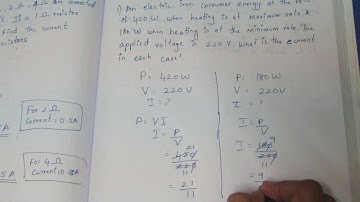 2Ω, 4Ω are connected
If 1Ω resistor
find the current
resistors
For 2Ω
Current = 0.5A
For 4Ω
Current = 0.
5A
5A
1) An electric iron consumes energy at the
of 420 W when heating is at maximum rate &
180 W when heating is at the minimum rate. The
applied voltage is 220 V. What is the current
in each case?
P = 420W
V = 220V
I = ?
P = VI
I = P/V
= 420/220
21
11
= 21/11
P = 180W
V = 220V
I = ?
I = P/V
I = 180/220
9
11
= 9